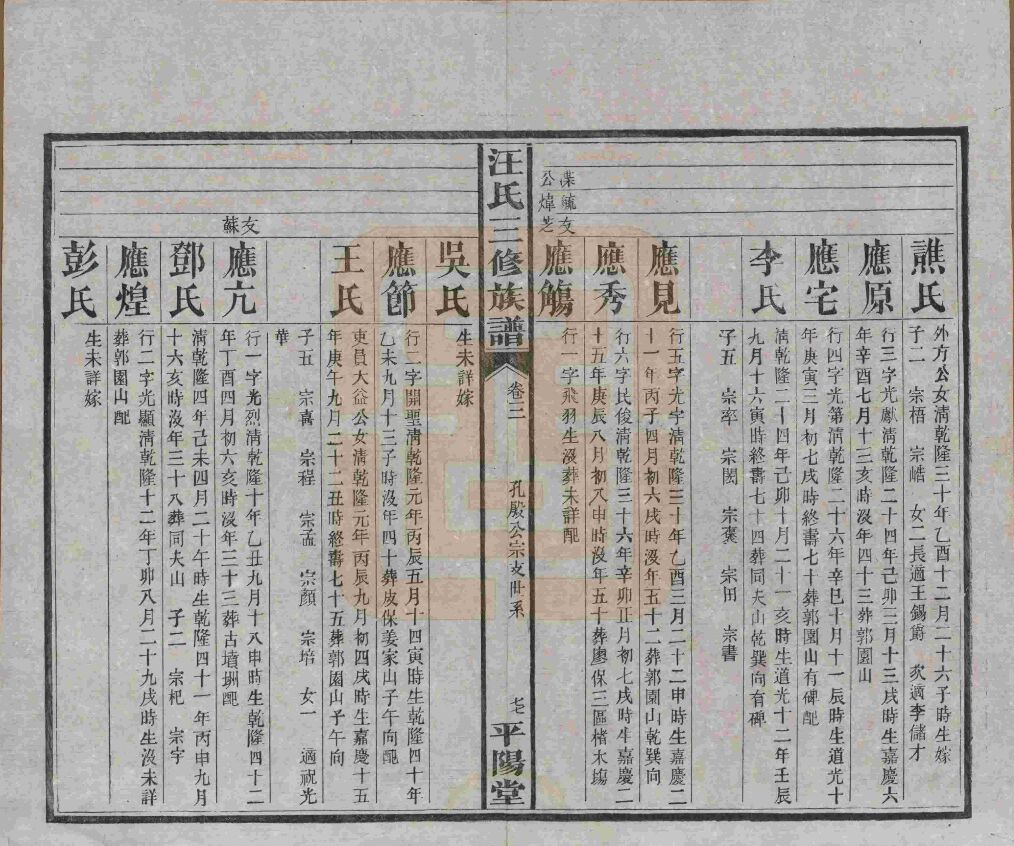 譙氏
外方公女清乾隆三十年乙酉十二月二十六子時生嫁
子二 宗梧 宗㟯 女二長適王錫爵 次適李儲才
應原
行三字光獻清乾隆二十四年己卯三月十三戌時生嘉慶六
年辛酉七月十三亥時沒年四十三葬郭園山
應宅
行四字光第清乾隆二十六年辛巳十月十一辰時生道光十
年庚寅三月初七戌時終壽七十葬郭園山有碑配
李氏
清乾隆二十四年己卯十月二十一亥時生道光十二年壬辰
九月十六寅時終壽七十四葬同夫山乾巽向有碑
子五 宗率 宗閎 宗褒 宗田 宗書
應見
行五字光宇清乾隆三十年乙酉三月二十二申時生嘉慶二
十一年丙子四月初六戌時沒年五十二葬郭園山乾巽向
應秀
行六字民俊清乾隆三十六年辛卯正月初七戌時生嘉慶二
十五年庚辰八月初八申時沒年五十葬廖保三區楮木塲
渫毓友
公煒芝
應觴
行一字飛羽生沒葬未詳配
汪氏三修族譜
卷三
孔殿公宗支世系
七七
平陽堂
吳氏
生未詳嫁
應節
行二字開聖清乾隆元年丙辰五月十四寅時生乾隆四十年
乙未九月十三子時沒年四十葬皮保姜家山子午向配
王氏
吏員大益公女清乾隆元年丙辰九月初四戌時生嘉慶十五
年庚午九月二十二丑時終壽七十五葬郭園山子午向
子五 宗喜 宗程 宗孟 宗顏 宗培 女一 適祝光
華
友蘇
應亢
行一字光烈清乾隆十年乙丑九月十八申時生乾隆四十二
年丁酉四月初六亥時沒年三十三葬古墳圳配
鄧氏
清乾隆四年己未四月二十午時生乾隆四十一年丙申九月
十六亥時沒年三十八葬同夫山 子二 宗杞 宗字
應煌
行二字光顯清乾隆十二年丁卯八月二十九戌時生沒未詳
葬郭園山配
彭氏
生未詳嫁